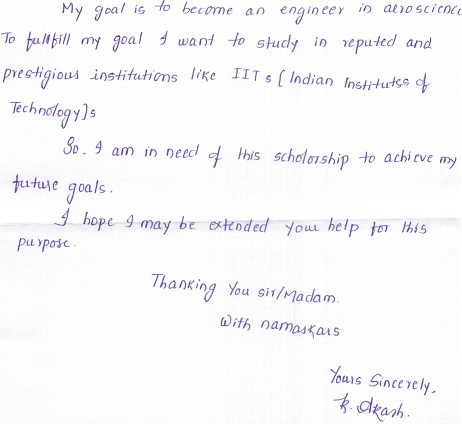 My goal is to become an engineer in aeroscience
To fullfill my goal I want to study in reputed and
prestigious institutions like IITs [Indian Institutes of
Technology]s
So. I am in need of this scholorship to achieve my
future goals.
I hope I may be extended your help for this
purpose.
Thanking You sir/Madam.
With namaskars
Yours Sincerely,
K. Akash.